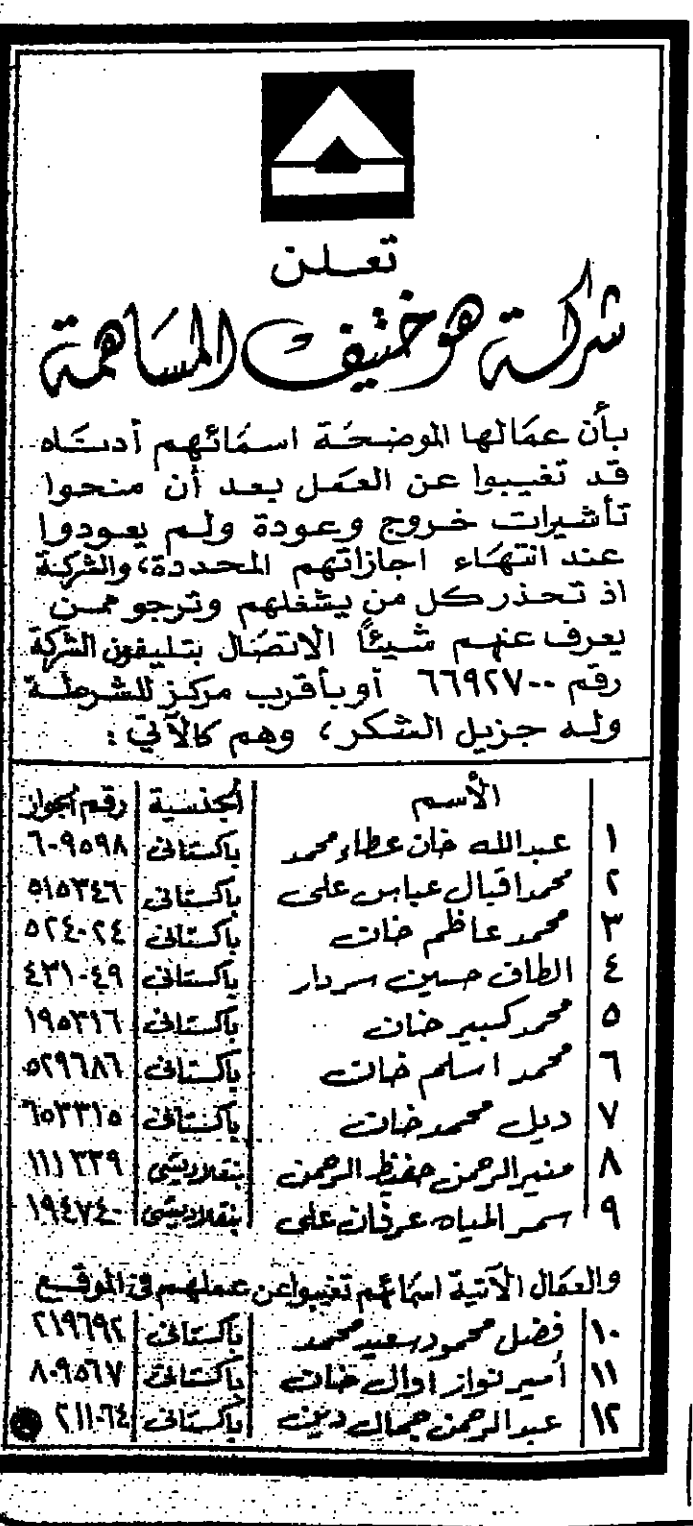 تعلن
شركة هوختيف المساهمة
بأن عمالها الموضحة اسمائهم أدناه
قد تغيبوا عن العمل بعد أن منحوا
تأشيرات خروج وعودة ولم يعودوا
عند انتهاء اجازاتهم المحددة، والشركة
اذ تحذر كل من يشغلهم وترجو ممن
يعرف عنهم شيئاً الاتصال بتليفون الشركة
رقم ٦٦٩٢٧٠٠ أو بأقرب مركز للشرطة
وله جزيل الشكر، وهم كالآتي :
الأسم الجنسية رقم الجواز
١ عبدالله خان عطاء محمد باكستاني ٦٠٩٥٩٨
٢ محمد اقبال عباس على باكستاني ٥١٥٣٤٦
٣ محمد عاظم خان باكستاني ٥٢٤٠٢٤
٤ الطاف حسين سردار باكستاني ٤٣١٠٤٩
٥ محمد كبير خان باكستاني ١٩٥٣١٦
٦ محمد اسلم خان باكستاني ٥٢٩٦٨٦
٧ ديل محمد خان باكستاني ٦٥٣٣١٥
٨ منير الرحمن حفيظ الرحمن بنقلاديشي ١١١٣٣٩
٩ سمر المياه عرفان على بنقلاديشي ١٩٤٧٤٠
والعمال الآتية اسمائهم تغيبوا عن عملهم في الموقع
١٠ فضل محمود سعيد محمد باكستاني ٢١٩٦٩٢
١١ أمير نواز اوال خان باكستاني ٨٠٩٥٦٧
١٢ عبدالرحمن جمال دين باكستاني ٢١١٠٦٤